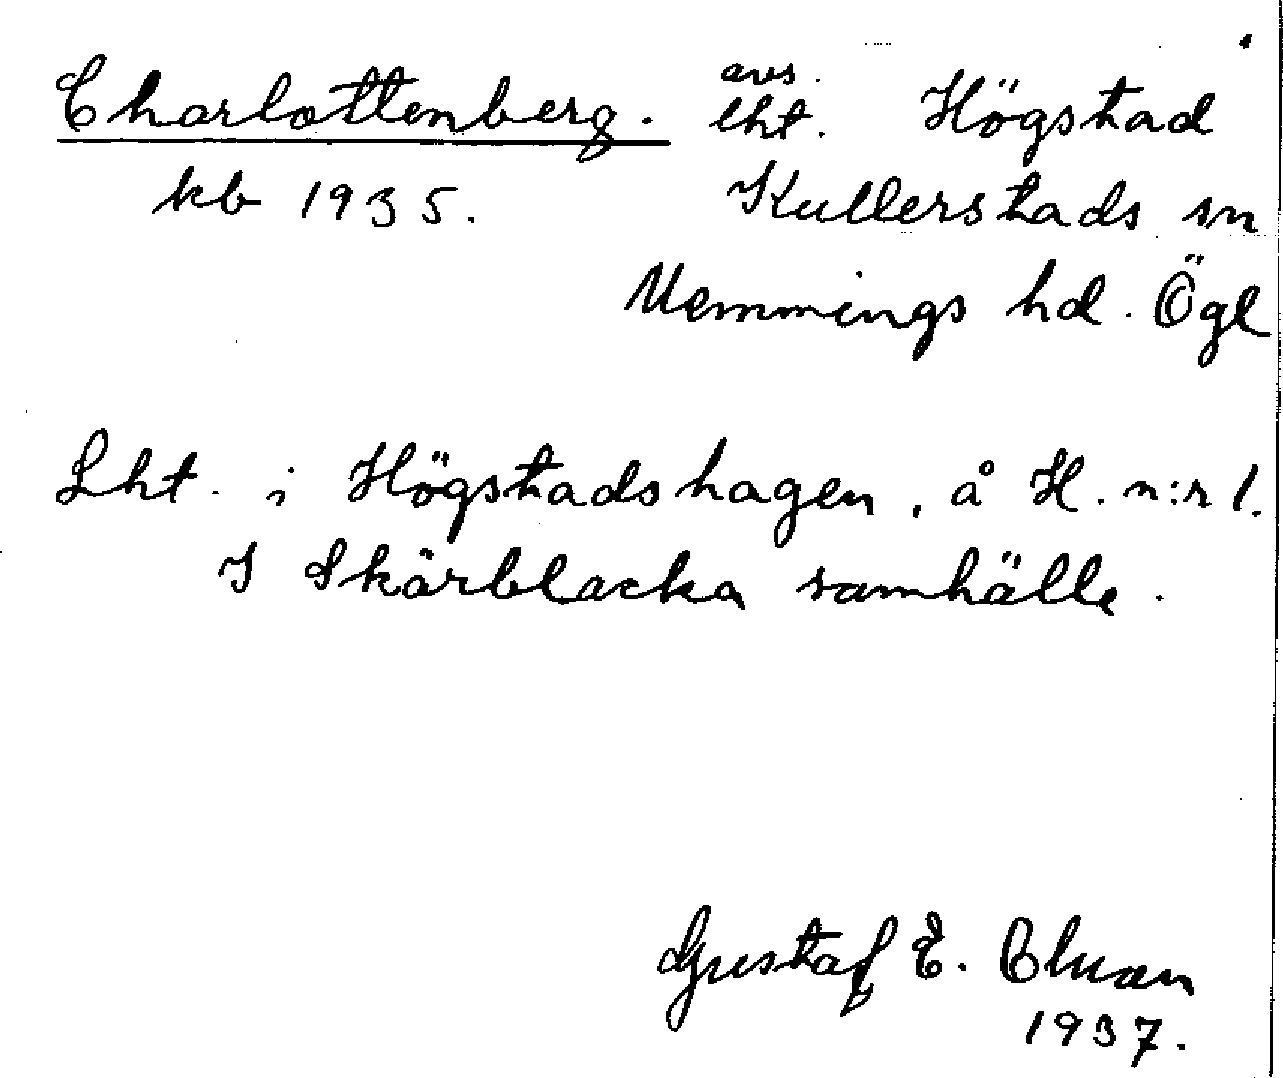 Charlottenberg. avs. lht. Högstad
kb 1935. Kullerstads sn
Memmings hd. Ögl
Lht. i Högstadshagen, å H. n:r 1.
I Skärblacka samhälle.
Gustaf E.
1937.